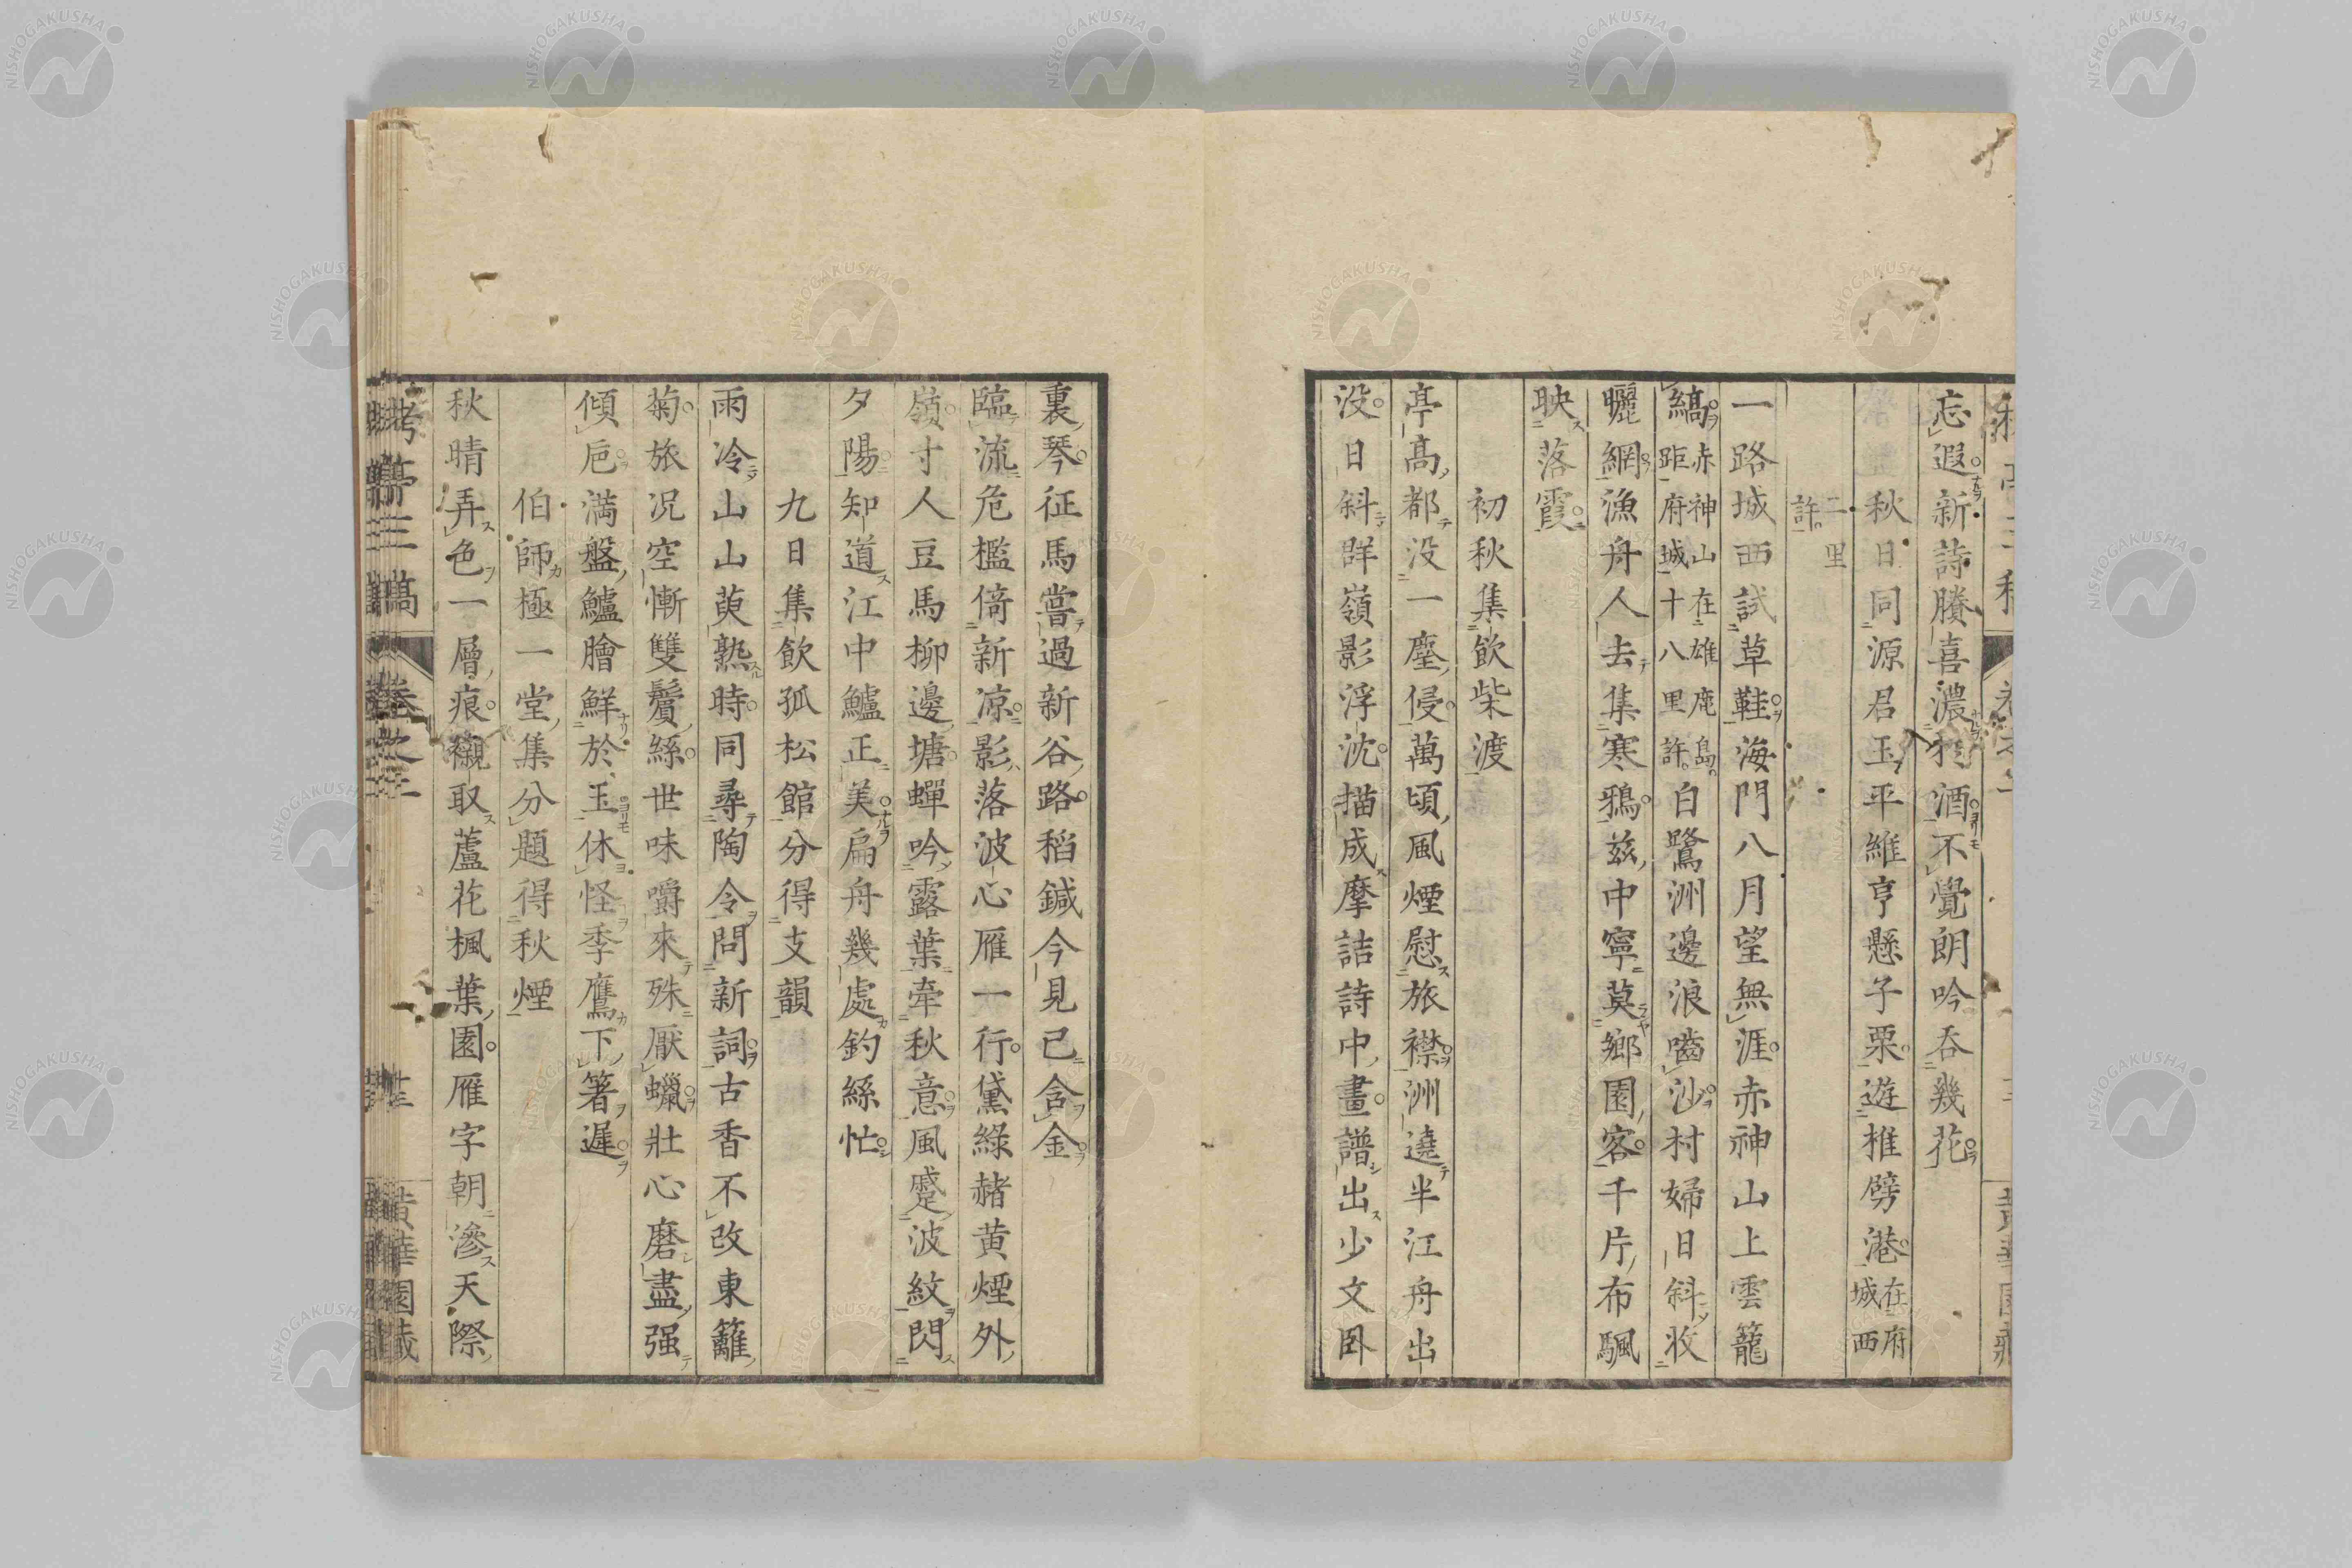 忘遐新詩賸喜濃於酒不覺朗吟呑幾花
秋日同源君玉平維亨懸子栗遊椎劈港在府城西
二里許
一路城西試草鞋海門八月望無涯赤神山上雲籠
縞赤神山在雄鹿島距府城十八里許白鷺洲邊浪嚙沙村婦日斜收
曬網漁舟人去集寒鴉玆中寧莫鄉園客千片布颿
映落霞
初秋集飲柴渡
亭高都没一塵侵萬頃風煙慰旅襟洲遶半江舟出
没日斜群嶺影浮沈描成摩詰詩中畫譜出少文卧
裏琴征馬嘗過新谷路稻鍼今見已含金
臨流危檻倚新凉影落波心雁一行黛綠赭黄煙外
嶺寸人豆馬柳邊塘蟬吟露葉牽秋意風蹙波紋閃
夕陽知道江中鱸正美扁舟幾處釣絲忙
九日集飲孤松館分得支韻
雨冷山山萸熟時同尋陶令問新詞古香不改東籬
菊旅況空慚雙鬢絲世味嚼來殊厭蠟壯心磨盡强
傾巵満盤鱸膾鮮於玉休怪季鷹下箸遲
伯師極一堂集分題得秋煙
秋晴弄色一層痕襯取蘆花楓葉園雁字朝滲天際
拷亭三稿
卷之二
黄華園藏
NISHOGAKUSHA